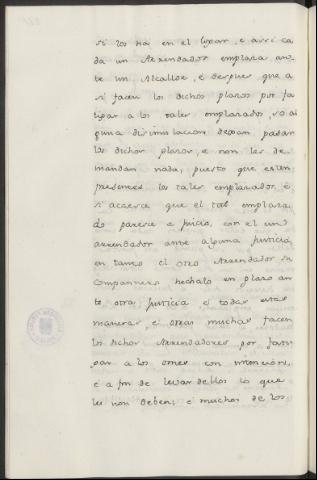 si los ha en el lugar, e assi ca
da un Arrendador emplaza an
te un Alcalde, e despues que a
si facen los dichos plazos por fa
tigar a los tales emplazados, so al
guna disimulacion dexan pasar
los dichos plazos, e non les de
mandan nada, puesto que esten
presentes los tales emplazados, e
si acaesce que el tal emplaza
do paresce a juicio, con el un
arrendador ante alguna Justicia,
en tanto el otro Arrendador su
Compannero hechalo en plazo an
te otra Justicia e todas estas
maneras, e otras muchas facen
los dichos Arrendadores por fati
gar a los omes con intención,
e a fin de levar dellos lo que
les non deben; e muchos de los